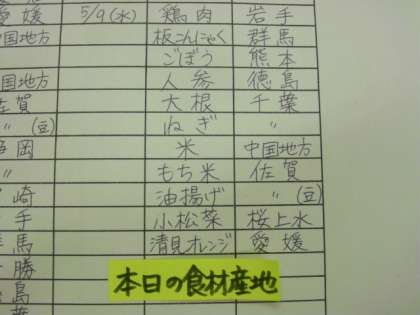 愛媛 5/9(水) 鶏肉 岩手
国地方 板こんにゃく 群馬
ごぼう 熊本
国地方 人参 徳島
佐賀 大根 千葉
〃(豆) ねぎ 〃
岡 米 中国地方
〃 もち米 佐賀
崎 油揚げ 〃(豆)
手 小松菜 桜上水
馬 清見オレンジ 愛媛
勝
島
本日の食材産地